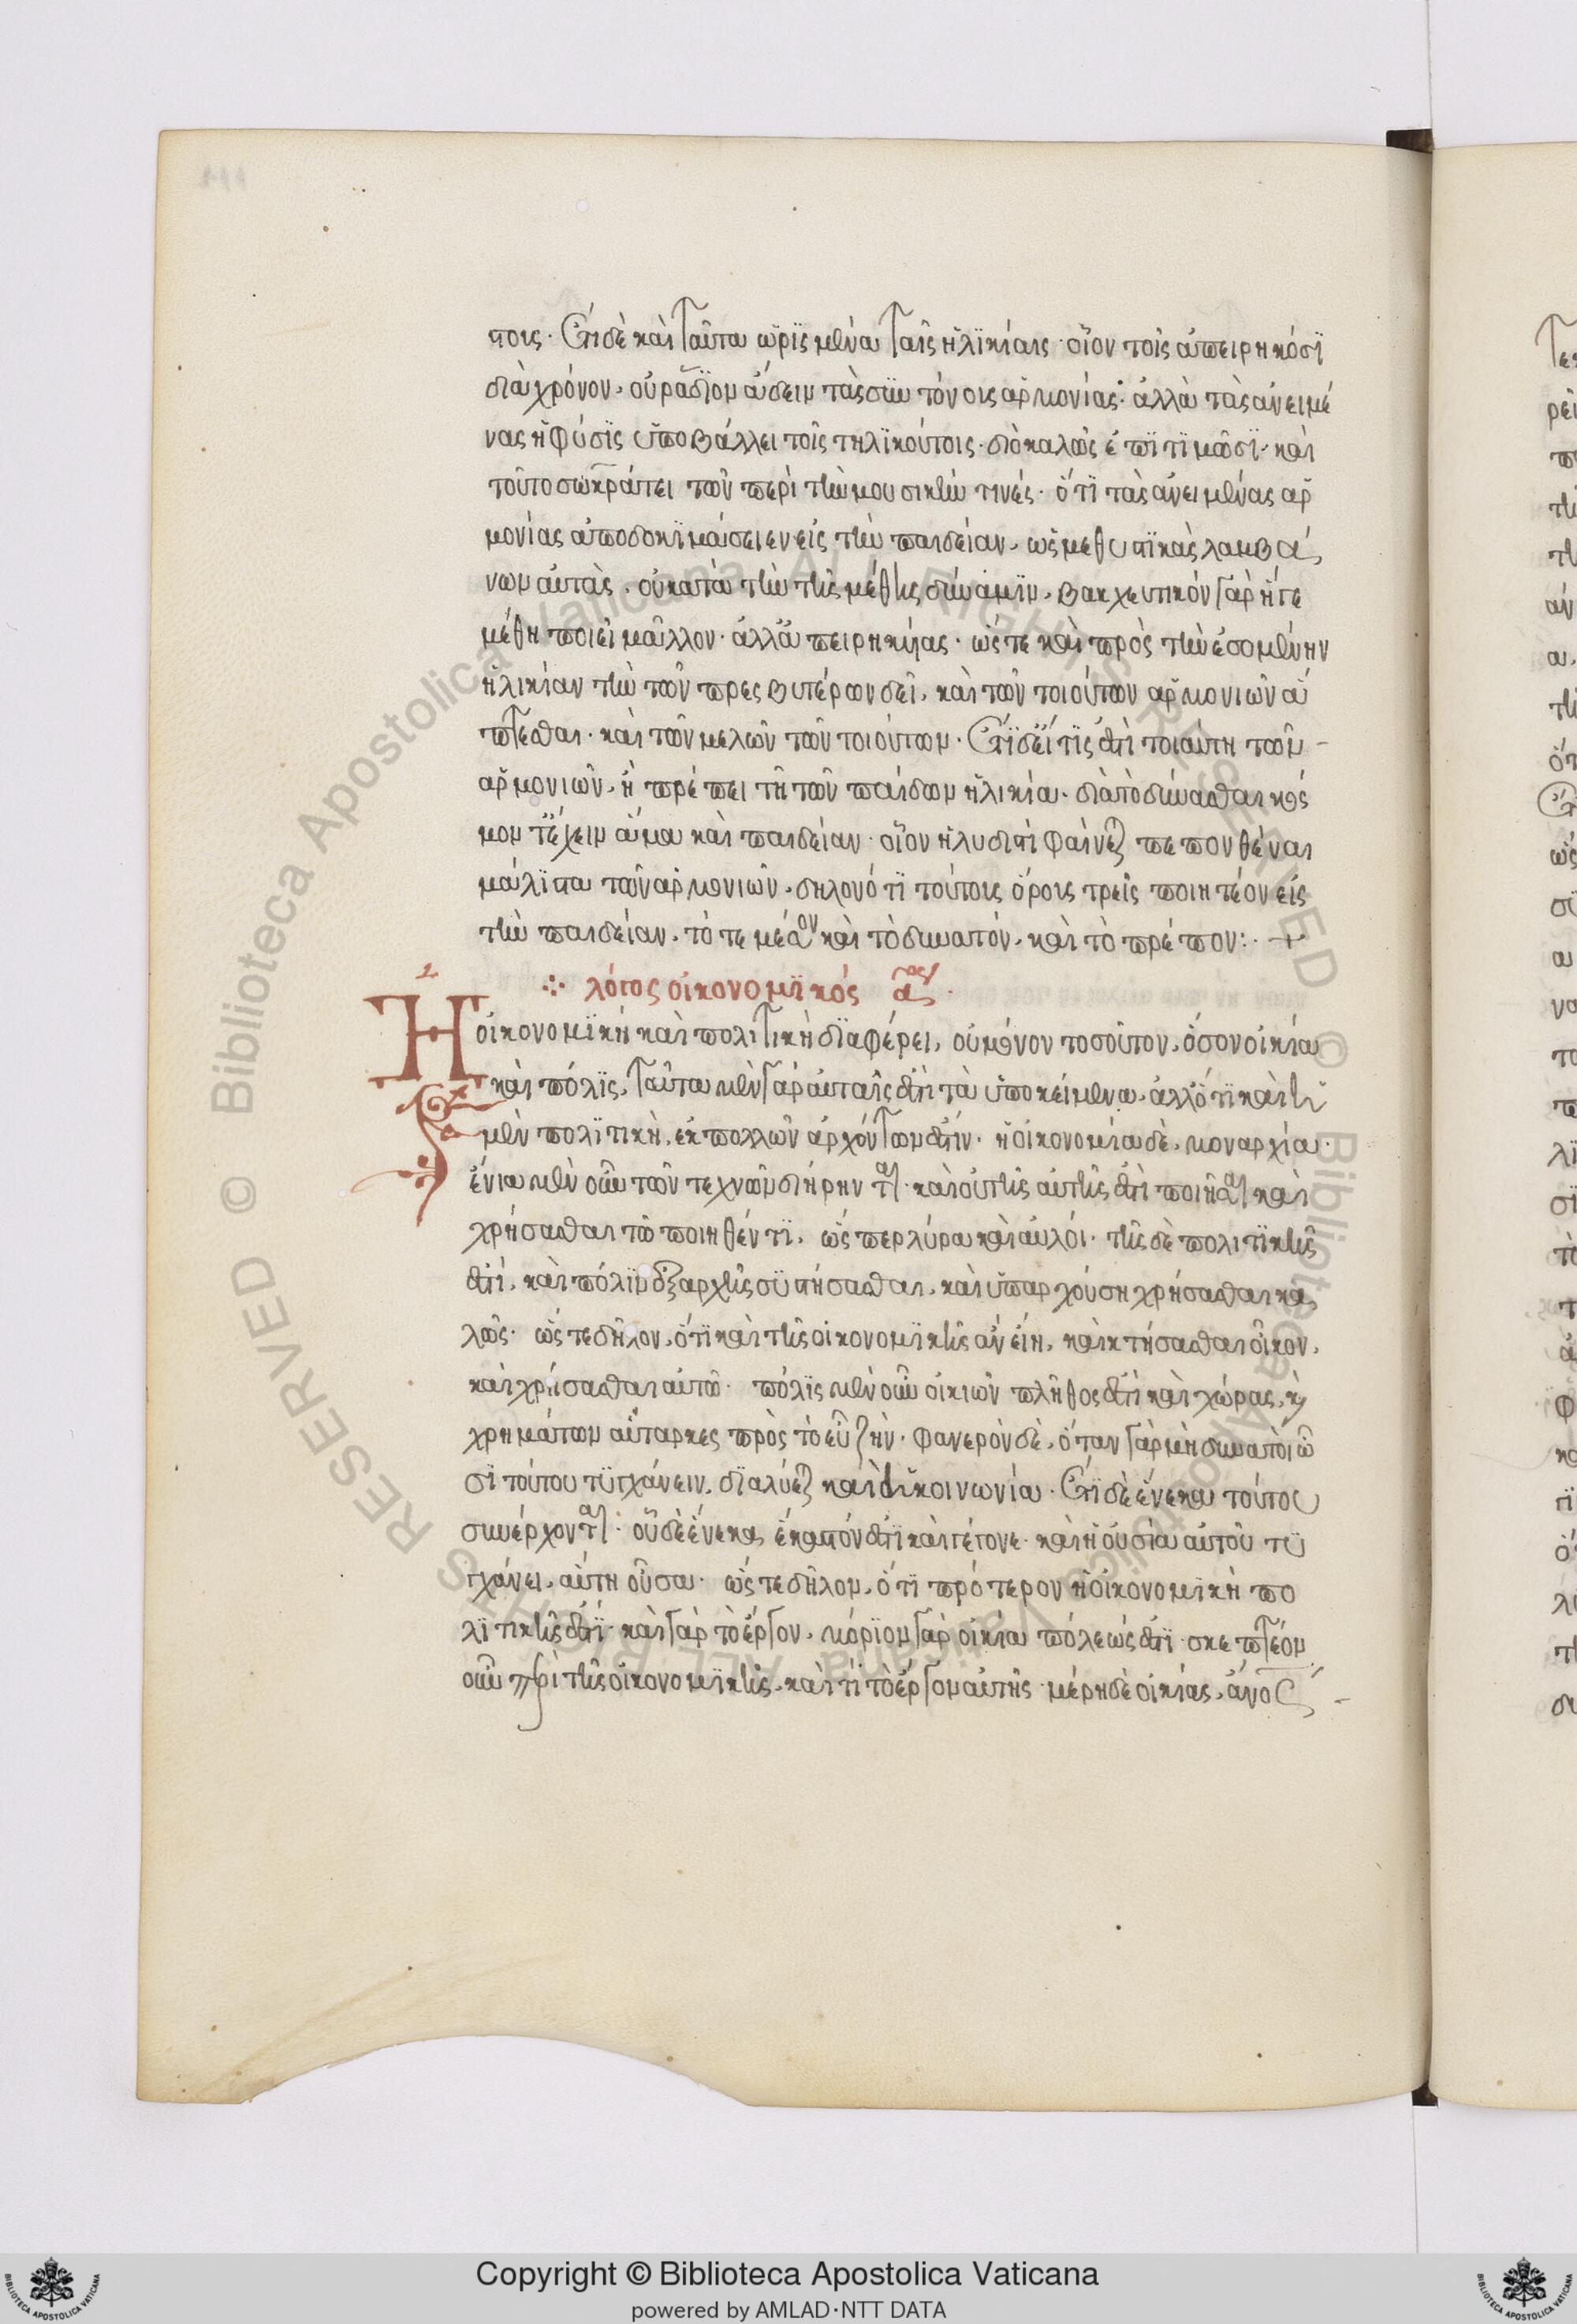 στοις· ἔστι δὲ καὶ ταῦτα ὡρισμένα ταῖς ἡλικίαις· οἷον τοῖς ἀπειρηκόσι
διὰ χρόνον, οὐ ῥάδιον ἄδειν τὰς συντόνους ἁρμονίας· ἀλλὰ τὰς ἀνειμέ
νας ἡ φύσις ὑποβάλλει τοῖς τηλικούτοις· διὸ καλῶς ἐπιτιμῶσι· καὶ
τοῦτο σωκράτει τῶν περὶ τὴν μουσικήν τινές· ὅτι τὰς ἀνειμένας ἁρ
μονίας ἀποδοκιμάσειεν εἰς τὴν παιδείαν, ὡς μεθυστικὰς λαμβά
νων αὐτὰς, οὐ κατὰ τὴν τῆς μέθης δύναμιν, βακχευτικὸν γὰρ ἥ γε
μέθη ποιεῖ μᾶλλον· ἀλλ' ἀπειρηκυίας· ὥστε καὶ πρὸς τὴν ἐσομένην
ἡλικίαν τὴν τῶν πρεσβυτέρων δεῖ, καὶ τῶν τοιούτων ἁρμονιῶν ἅ
πτεσθαι· καὶ τῶν μελῶν τῶν τοιούτων· ἔτι δ' εἴ τίς ἐστι τοιαύτη τῶν
ἁρμονιῶν, ἣ πρέπει τῇ τῶν παίδων ἡλικία· διὰ τὸ δύνασθαι κόσ
μον τ' ἔχειν ἅμα καὶ παιδείαν· οἷον ἡ λυδιστὶ φαίνεται πεπονθέναι
μάλιστα τῶν ἁρμονιῶν, δηλονότι τούτοις ὅρους τρεῖς ποιητέον εἰς
τὴν παιδείαν, τό τε μέσον καὶ τὸ δυνατόν, καὶ τὸ πρέπον:· +
λόγος οἰκονομικός α^ος·
Η οἰκονομικὴ καὶ πολιτικὴ διαφέρει, οὐ μόνον τοσοῦτον, ὅσον οἰκία
καὶ πόλις, ταῦτα μὲν γὰρ αὐταῖς ἐστι τὰ ὑποκείμενα, ἀλλ' ὅτι καὶ ἡ
μὲν πολιτικὴ, ἐκ πολλῶν ἀρχόντων ἐστίν· ἡ οἰκονομία δὲ, μοναρχία·
ἔνιαι μὲν οὖν τῶν τεχνῶν διήρηνται· καὶ οὐ τῆς αὐτῆς ἐστὶ ποιῆσαι καὶ
χρήσασθαι τῶ ποιηθέντι, ὥσπερ λύρα καὶ αὐλοί· τῆς δὲ πολιτικῆς
ἐστί, καὶ πόλιν ἐξ ἀρχῆς συστήσασθαι, καὶ ὑπαρχούση χρήσασθαι κα
λῶς· ὥστε δῆλον, ὅτι καὶ τῆς οἰκονομικῆς ἂν εἴη, καὶ κτήσασθαι οἶκον,
καὶ χρήσασθαι αὐτῶ· πόλις μὲν οὖν οἰκιῶν πλῆθος ἐστὶ καὶ χώρας, καὶ
χρημάτων αὔταρκες πρὸς τὸ εὖ ζῆν· φανερὸν δὲ, ὅταν γὰρ μὴ δυνατοὶ ὦ
σι τούτου τυγχάνειν, διαλύεται καὶ ἡ κοινωνία· ἔτι δὲ ἕνεκα τούτου
συνέρχονται· οὗ δὲ ἕνεκα, ἕκαστόν ἐστι καὶ γέγονε· καὶ ἡ οὐσία αὐτοῦ τυ
γχάνει, αὕτη οὖσα· ὥστε δῆλον, ὅτι πρότερον ἡ οἰκονομικὴ πο
λιτικῆς ἐστι· καὶ γὰρ τὸ ἔργον, μόριον γὰρ οἰκία πόλεώς ἐστι· σκεπτέον
οὖν περὶ τῆς οἰκονομικῆς, καὶ τί τὸ ἔργον αὐτῆς· μέρη δὲ οἰκίας, ἄνος
Copyright © Biblioteca Apostolica Vaticana
powered by AMLAD·NTT DATA